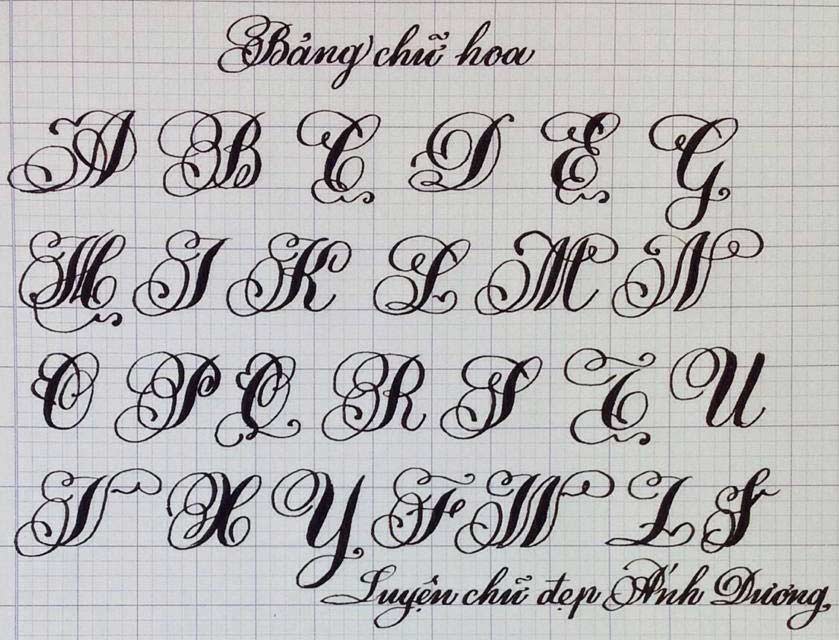 Bảng chữ hoa
A B C D E G
H I K L M N
O P Q R S T U
V X Y F W Z
Luyện chữ đẹp Ánh Dương